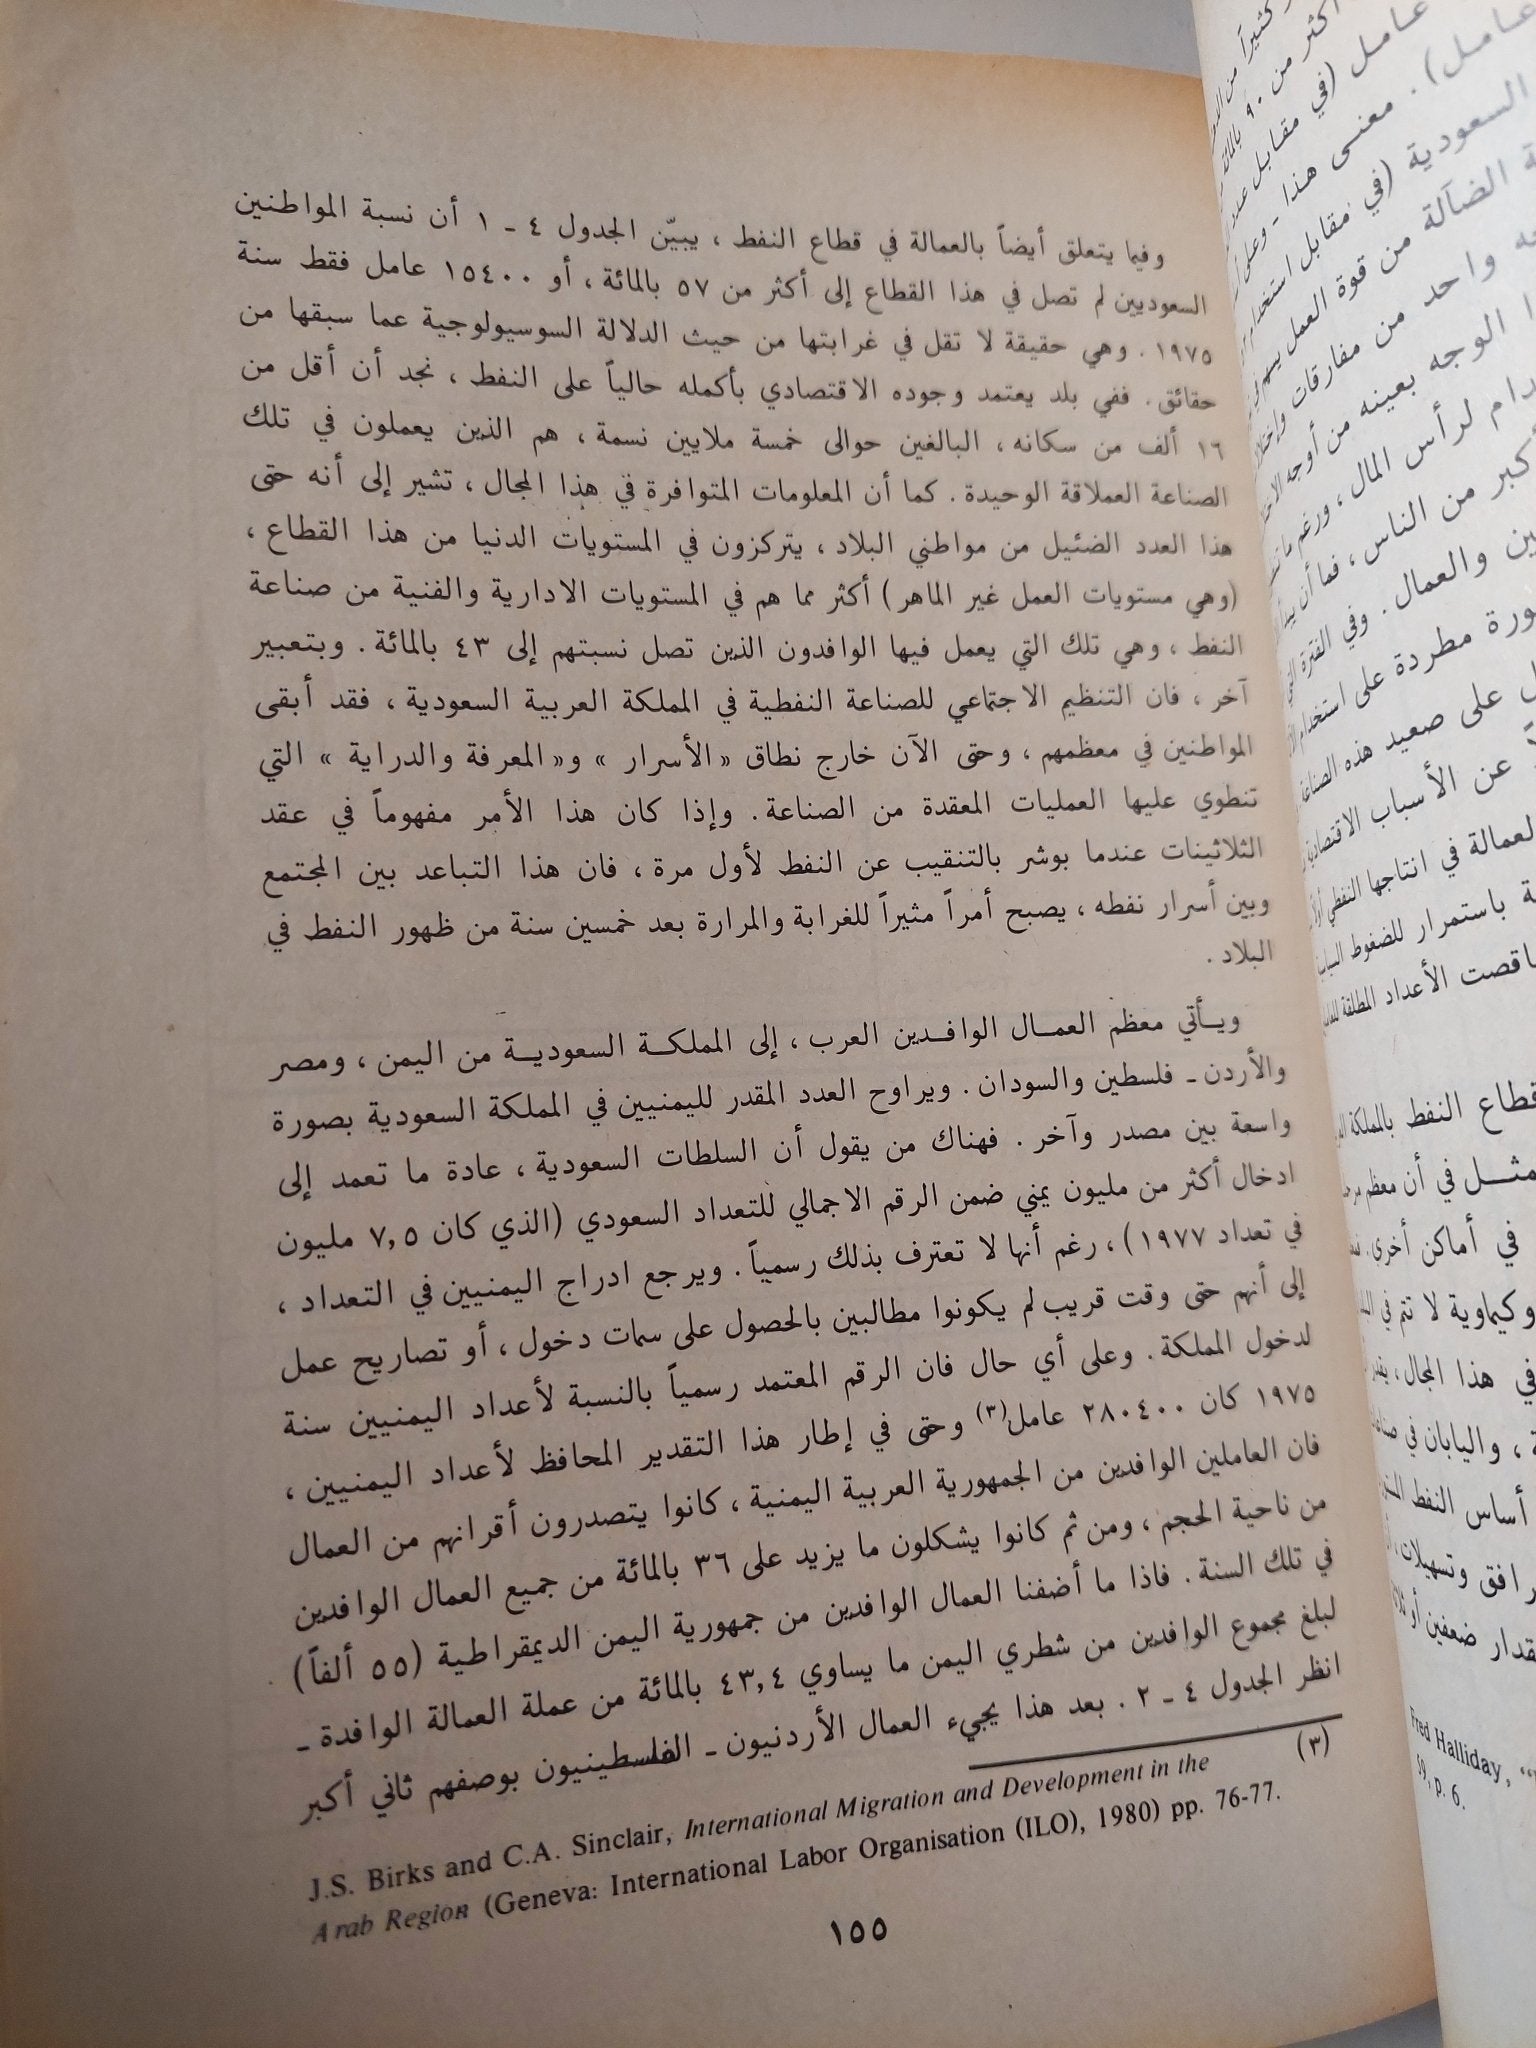 وفيما يتعلق أيضاً بالعمالة في قطاع النفط ، يبيّن الجدول ٤ - ١ أن نسبة المواطنين
السعوديين لم تصل في هذا القطاع إلى أكثر من ٥٧ بالمائة ، أو ١٥٤٠٠ عامل فقط سنة
١٩٧٥ . وهي حقيقة لا تقل في غرابتها من حيث الدلالة السوسيولوجية عما سبقها من
حقائق . ففي بلد يعتمد وجوده الاقتصادي بأكمله حالياً على النفط ، نجد أن أقل من
١٦ ألف من سكانه ، البالغين حوالى خمسة ملايين نسمة ، هم الذين يعملون في تلك
الصناعة العملاقة الوحيدة . كما أن المعلومات المتوافرة في هذا المجال ، تشير إلى أنه حتى
هذا العدد الضئيل من مواطني البلاد ، يتركزون في المستويات الدنيا من هذا القطاع ،
(وهي مستويات العمل غير الماهر) أكثر مما هم في المستويات الادارية والفنية من صناعة
النفط ، وهي تلك التي يعمل فيها الوافدون الذين تصل نسبتهم إلى ٤٣ بالمائة . وبتعبير
آخر ، فان التنظيم الاجتماعي للصناعة النفطية في المملكة العربية السعودية ، فقد أبقى
المواطنين في معظمهم ، وحتى الآن خارج نطاق « الأسرار » و« المعرفة والدراية » التي
تنطوي عليها العمليات المعقدة من الصناعة . وإذا كان هذا الأمر مفهوماً في عقد
الثلاثينات عندما بوشر بالتنقيب عن النفط لأول مرة ، فان هذا التباعد بين المجتمع
وبين أسرار نفطه ، يصبح أمراً مثيراً للغرابة والمرارة بعد خمسين سنة من ظهور النفط في
البلاد .
ويأتي معظم العمال الوافدين العرب ، إلى المملكة السعودية من اليمن ، ومصر
والأردن - فلسطين والسودان . ويراوح العدد المقدر لليمنيين في المملكة السعودية بصورة
واسعة بين مصدر وآخر . فهناك من يقول أن السلطات السعودية ، عادة ما تعمد إلى
ادخال أكثر من مليون يمني ضمن الرقم الاجمالي للتعداد السعودي (الذي كان ٧,٥ مليون
في تعداد ١٩٧٧) ، رغم أنها لا تعترف بذلك رسمياً . ويرجع ادراج اليمنيين في التعداد ،
إلى أنهم حتى وقت قريب لم يكونوا مطالبين بالحصول على سمات دخول ، أو تصاريح عمل
لدخول المملكة . وعلى أي حال فان الرقم المعتمد رسمياً بالنسبة لأعداد اليمنيين سنة
١٩٧٥ كان ٢٨٠٤٠٠ عامل(٣) وحتى في إطار هذا التقدير المحافظ لأعداد اليمنيين ،
فان العاملين الوافدين من الجمهورية العربية اليمنية ، كانوا يتصدرون أقرانهم من العمال
من ناحية الحجم ، ومن ثم كانوا يشكلون ما يزيد على ٣٦ بالمائة من جميع العمال الوافدين
في تلك السنة . فاذا ما أضفنا العمال الوافدين من جمهورية اليمن الديمقراطية (٥٥ ألفاً)
لبلغ مجموع الوافدين من شطري اليمن ما يساوي ٤٣,٤ بالمائة من عملة العمالة الوافدة -
انظر الجدول ٤ - ٢ . بعد هذا يجيء العمال الأردنيون - الفلسطينيون بوصفهم ثاني أكبر
(٣)
J.S. Birks and C.A. Sinclair, International Migration and Development in the
Arab Region (Geneva: International Labor Organisation (ILO), 1980) pp. 76-77.
١٥٥
أكثر من ٩٠ بالمائة
عامل (في مقابل
عامل) . معنى هذا - وعلى
السعودية (في مقابل استخدام
الضآلة من قوة العمل يسهم
واحد من مفارقات
الوجه بعينه من أوجه
لرأس المال ، ورغم ما
أكبر من الناس ، فما أن
والعمال . وفي الفترة
مطردة على استخدام
على صعيد هذه الصناعة
عن الأسباب
العمالة في انتاجها النفطي
باستمرار للضغوط
الأعداد المطلقة
قطاع النفط بالمملكة
في أن معظم
في أماكن أخرى .
وكيماوية لا تتم في
في هذا المجال ،
، واليابان في
أساس النفط
وتسهيلات
ضعفين أو
Fred Halliday, “
59, p. 6.